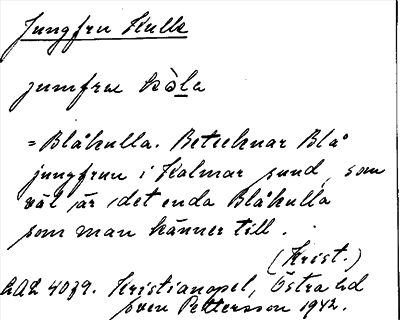 Jungfru Kulle
jumfru kòla
= Blåkulla. Betecknar Blå
jungfrun i Kalmar sund, som
väl är det enda Blåkulla
som man känner till.
(Krist.)
LAL 4039. Kristianopel, Östra hd
Sven Pettersson 1942.